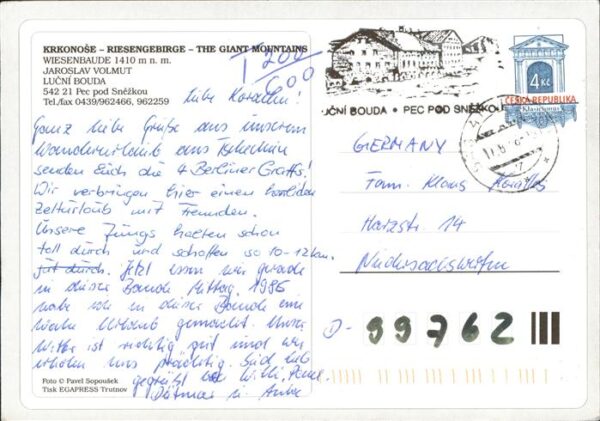 KRKONOŠE – RIESENGEBIRGE – THE GIANT MOUNTAINS
WIESENBAUDE 1410 m n. m.
JAROSLAV VOLMUT
LUČNÍ BOUDA
542 21 Pec pod Sněžkou
Tel./fax 0439/962466, 962259
T 200
600
Liebe
Ganz liebe Grüße aus unserem
Wanderurlaub aus Tschechien
senden Euch die 4 Berliner Graffs!
Wir verbringen hier einen
Zelturlaub mit Freunden.
Unsere Jungs halten schon
toll durch und schaffen so 10-12 km
gut durch. Jetzt essen wir gerade
in dieser Baude Mittag, 1986
habe ich in dieser Baude eine
Woche Urlaub gemacht. Unser
Wetter ist richtig gut und wir
erholen uns prächtig. Seid lieb
gegrüßt
Dietmar u.
Foto © Pavel Sopoušek
Tisk EGAPRESS Trutnov
UČNÍ BOUDA • PEC POD SNĚŽKOU
4 Kč
ČESKÁ REPUBLIKA
Klasicismus
GERMANY
Fam. Klaus
Harzstr. 14
Niedersachswerfen
D- 99762